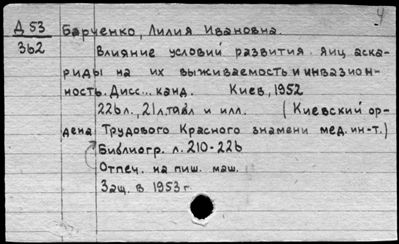 Д 53 Барченко, Лилия Ивановна. 4
362 Влияние условий развития яиц аска-
риды на их выживаемость и инвазион-
ность. Дисс... канд. Киев, 1952
226л., 21л.табл и илл. (Киевский ор-
дена Трудового Красного знамени мед. ин-т.)
Библиогр. л. 210-226
Отпеч. на пиш. маш.
Защ. в 1953г